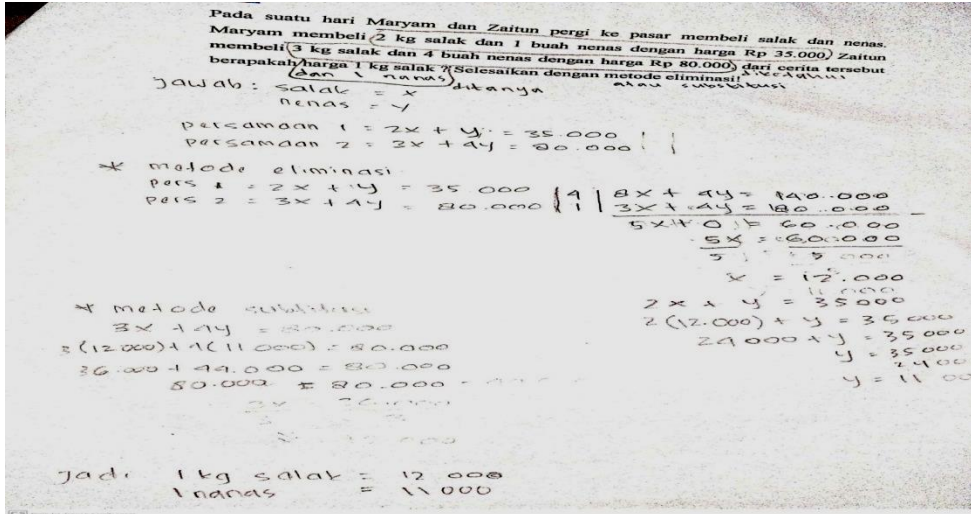 Pada suatu hari Maryam dan Zaitun pergi ke pasar membeli salak dan nenas.
Maryam membeli 2 kg salak dan 1 buah nenas dengan harga Rp 35.000, Zaitun
membeli 3 kg salak dan 4 buah nenas dengan harga Rp 80.000, dari cerita tersebut diketahui
berapakah harga 1 kg salak ? Selesaikan dengan metode eliminasi! atau substitusi
(dan 1 nanas) ditanya
Jawab : salak = x
nenas = y
persamaan 1 = 2x + y = 35.000
persamaan 2 = 3x + 4y = 80.000
* metode eliminasi
pers 1 = 2x + y = 35 000 |4| 8x + 4y = 140.000
pers 2 = 3x + 4y = 80.000 |1| 3x + 4y = 80.000
5x + 0 = 60.000
5x = 60.000
5
x = 12.000
2x + y = 35000
2(12.000) + y = 35000
24000 + y = 35000
y = 35000
2400
y = 11
* metode
3x + 4y = 80.000
3(12000) + 4(11000) = 80.000
36.000 + 44.000 = 80.000
80.000 = 80.000
Jadi 1 kg salak = 12 000
1 nanas = 11 000